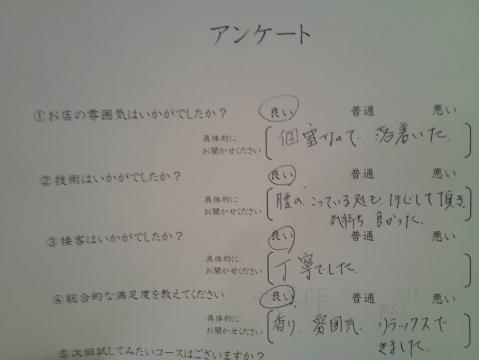 アンケート
①お店の雰囲気はいかがでしたか？ 良い 普通 悪い
具体的に
お聞かせください
個室なので、落着いた。
②技術はいかがでしたか？ 良い 普通 悪い
具体的に
お聞かせください
腰の、こっている処も、ほぐして頂き
気持ち良かった。
③接客はいかがでしたか？ 良い 普通 悪い
具体的に
お聞かせください
丁寧でした。
④総合的な満足度を教えてください 良い 普通 悪い
具体的に
お聞かせください
香り、雰囲気、リラックスで
きました。
⑤次回試してみたいコースはございますか？